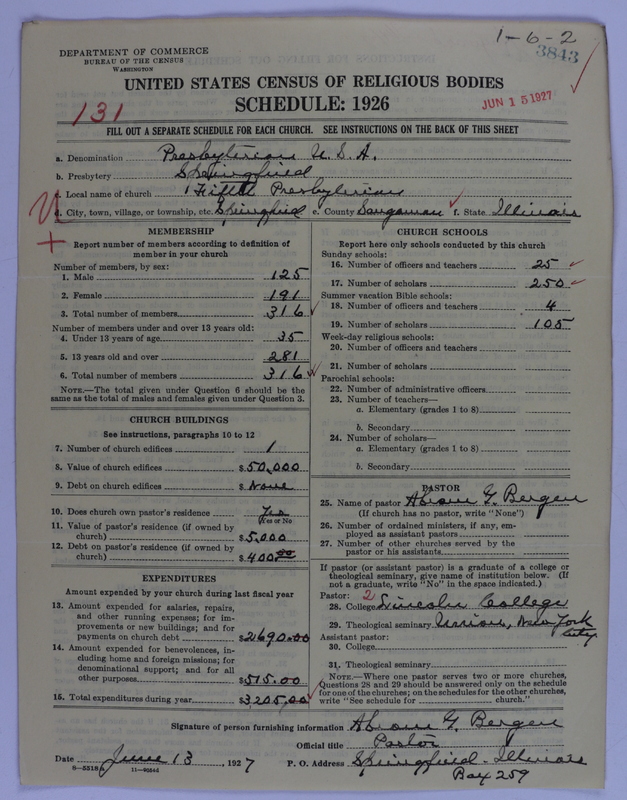 1-6-2
3843
DEPARTMENT OF COMMERCE
BUREAU OF THE CENSUS
WASHINGTON
UNITED STATES CENSUS OF RELIGIOUS BODIES
SCHEDULE: 1926
131
JUN 15 1927
FILL OUT A SEPARATE SCHEDULE FOR EACH CHURCH. SEE INSTRUCTIONS ON THE BACK OF THIS SHEET
a. Denomination Presbyterian U.S.A.
b. Presbytery Springfield
c. Local name of church Fifth Presbyterian
d. City, town, village, or township, etc. Springfield e. County Sangamon f. State Illinois
MEMBERSHIP
Report number of members according to definition of
member in your church
Number of members, by sex:
1. Male 125
2. Female 191
3. Total number of members 316
Number of members under and over 13 years old:
4. Under 13 years of age 35
5. 13 years old and over 281
6. Total number of members 316
NOTE.—The total given under Question 6 should be the
same as the total of males and females given under Question 3.
CHURCH BUILDINGS
See instructions, paragraphs 10 to 12
7. Number of church edifices 1
8. Value of church edifices $50,000
9. Debt on church edifices $ None
10. Does church own pastor's residence Yes
(Yes or No)
11. Value of pastor's residence (if owned by
church) $5,000
12. Debt on pastor's residence (if owned by
church) $400.00
EXPENDITURES
Amount expended by your church during last fiscal year
13. Amount expended for salaries, repairs,
and other running expenses; for im-
provements or new buildings; and for
payments on church debt $2690.00
14. Amount expended for benevolences, in-
cluding home and foreign missions; for
denominational support; and for all
other purposes $515.00
15. Total expenditures during year $3205.00
CHURCH SCHOOLS
Report here only schools conducted by this church
Sunday schools:
16. Number of officers and teachers 25
17. Number of scholars 250
Summer vacation Bible schools:
18. Number of officers and teachers 4
19. Number of scholars 105
Week-day religious schools:
20. Number of officers and teachers
21. Number of scholars
Parochial schools:
22. Number of administrative officers
23. Number of teachers—
a. Elementary (grades 1 to 8)
b. Secondary
24. Number of scholars—
a. Elementary (grades 1 to 8)
b. Secondary
PASTOR
25. Name of pastor Abram G. Bergen
(If church has no pastor, write "None")
26. Number of ordained ministers, if any, em-
ployed as assistant pastors
27. Number of other churches served by the
pastor or his assistants
If pastor (or assistant pastor) is a graduate of a college or
theological seminary, give name of institution below. (If
not a graduate, write "No" in the space indicated.)
Pastor: 2
28. College Lincoln College
29. Theological seminary Union, New York
City
Assistant pastor:
30. College
31. Theological seminary
NOTE.—Where one pastor serves two or more churches,
Questions 28 and 29 should be answered only on the schedule
for one of the churches; on the schedules for the other churches,
write "See schedule for church."
Signature of person furnishing information Abram G. Bergen
Official title Pastor
Date June 13, 1927 P. O. Address Springfield - Illinois
8—5518 11—9056d Box 259